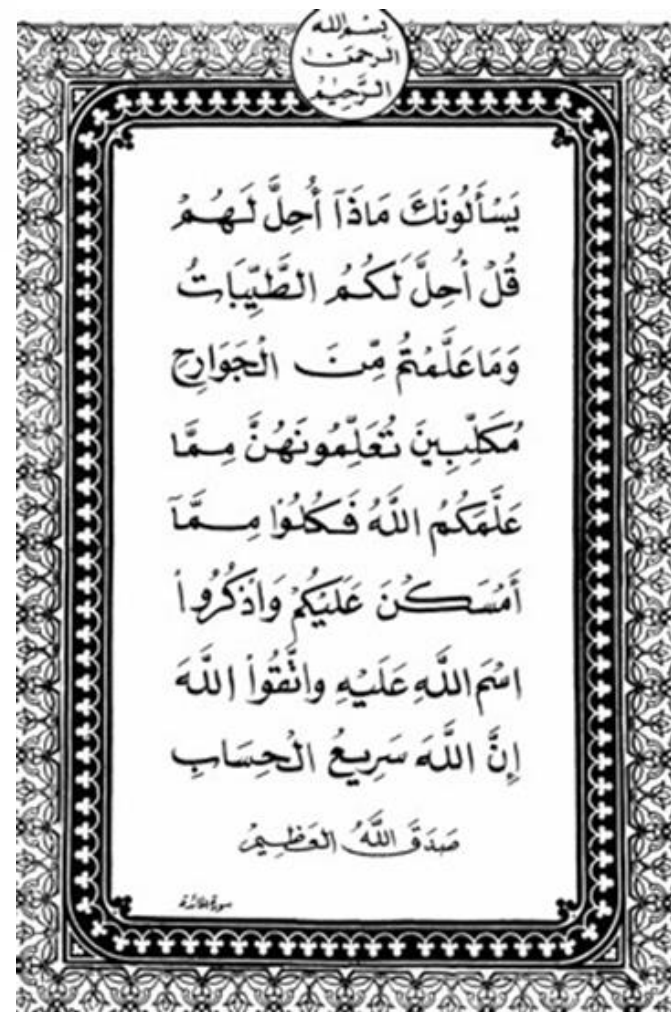 بِسْمِ اللهِ
الرَّحْمَنِ
الرَّحِيمِ
يَسْأَلُونَكَ مَاذَآ أُحِلَّ لَهُمْ
قُلْ أُحِلَّ لَكُمُ الطَّيِّبَاتُ
وَمَا عَلَّمْتُمْ مِّنَ الْجَوَارِحِ
مُكَلِّبِينَ تُعَلِّمُونَهُنَّ مِمَّا
عَلَّمَكُمُ اللَّهُ فَكُلُوْا مِمَّآ
أَمْسَكْنَ عَلَيْكُمْ وَاذْكُرُوا
اسْمَ اللَّهِ عَلَيْهِ وَاتَّقُوا اللَّهَ
إِنَّ اللَّهَ سَرِيعُ الْحِسَابِ
صَدَقَ اللَّهُ العَظِيمُ
سورة المائدة